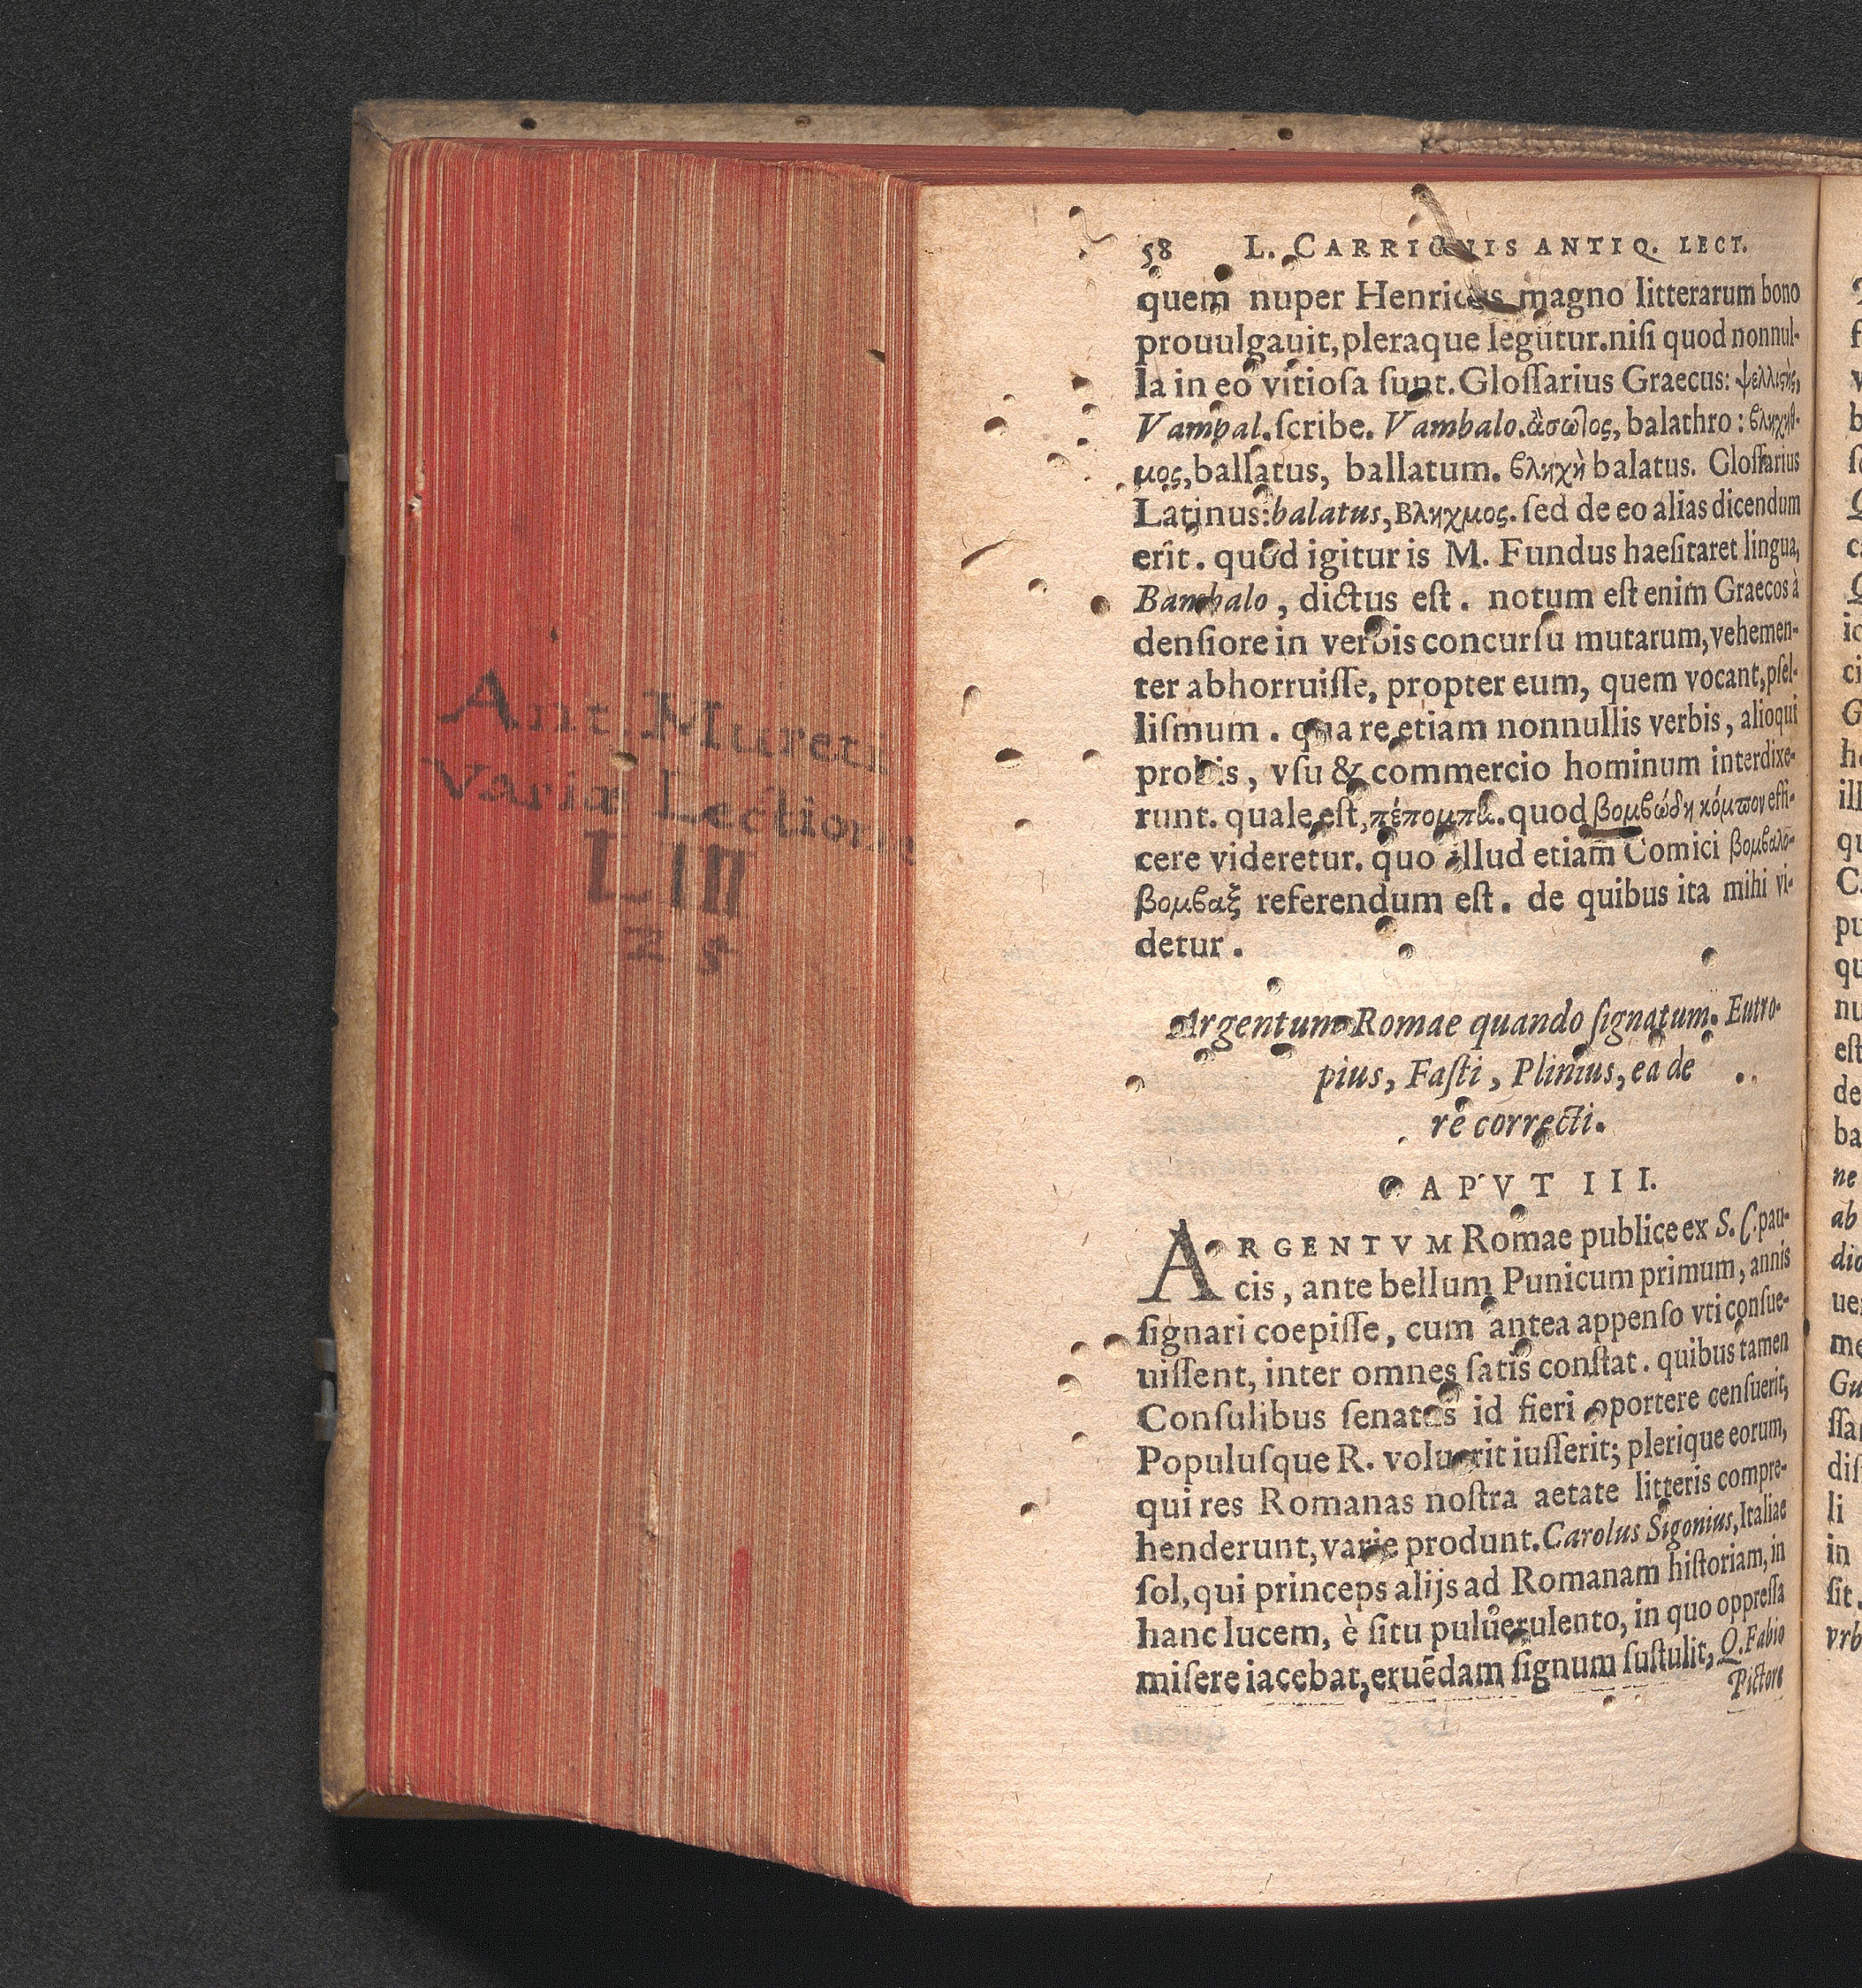 Ant. Mureti
Variæ Lectione
58 L. CARRIONIS ANTIQ. LECT.
quem nuper Henricus magno litterarum bono
prouulgauit, pleraque legūtur. niſi quod nonnul-
la in eo vitioſa ſunt. Gloſſarius Graecus: ψελλιςὴς,
Vampal. ſcribe. Vambalo. ἄσωτος, balathro: βληχηθ-
μος, ballatus, ballatum. βληχὴ balatus. Gloſſarius
Latinus: balatus, Βληχμος. ſed de eo alias dicendum
erit. quod igitur is M. Fundus haeſitaret lingua,
Bambalo, dictus eſt. notum eſt enim Graecos à
denſiore in verbis concurſu mutarum, vehemen-
ter abhorruiſſe, propter eum, quem vocant, pſel-
liſmum. quare etiam nonnullis verbis, alioqui
probis, vſu & commercio hominum interdixe-
runt. quale eſt, πέπομπα. quod βομβώδη κόμπον effi-
cere videretur. quo illud etiam Comici βομβαλο-
βομβαξ referendum eſt. de quibus ita mihi vi-
detur.
Argentum Romae quando ſignatum. Eutro-
pius, Faſti, Plinius, ea de
re correcti.
CAPVT III.
ARGENTVM Romae publice ex S. C. pau-
cis, ante bellum Punicum primum, annis
ſignari coepiſſe, cum antea appenſo vti conſue-
uiſſent, inter omnes ſatis conſtat. quibus tamen
Conſulibus ſenatus id fieri oportere cenſuerit,
Populuſque R. voluerit iuſſerit; plerique eorum,
qui res Romanas noſtra aetate litteris compre-
henderunt, varie produnt. Carolus Sigonius, Italiae
ſol, qui princeps alijs ad Romanam hiſtoriam, in
hanc lucem, è ſitu puluerulento, in quo oppreſſa
miſere iacebat, eruēdam ſignum ſuſtulit, Q. Fabio
Pictore